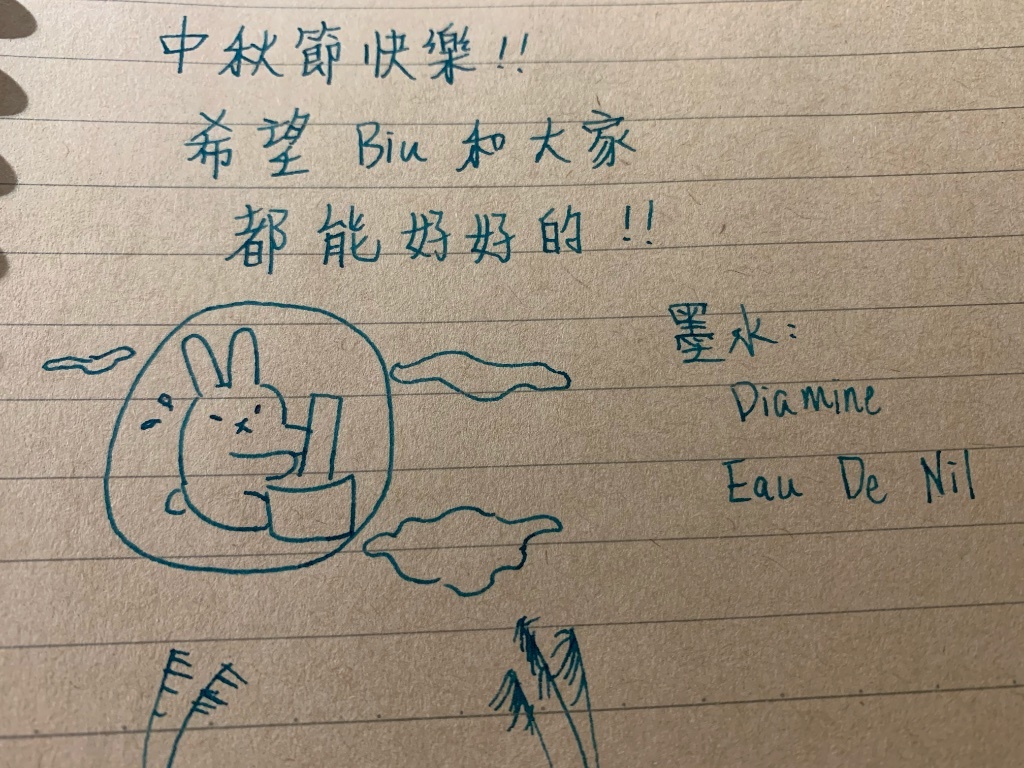 中秋節快樂!!
希望 Biu 和大家
都能好好的!!
墨水:
Diamine
Eau De Nil